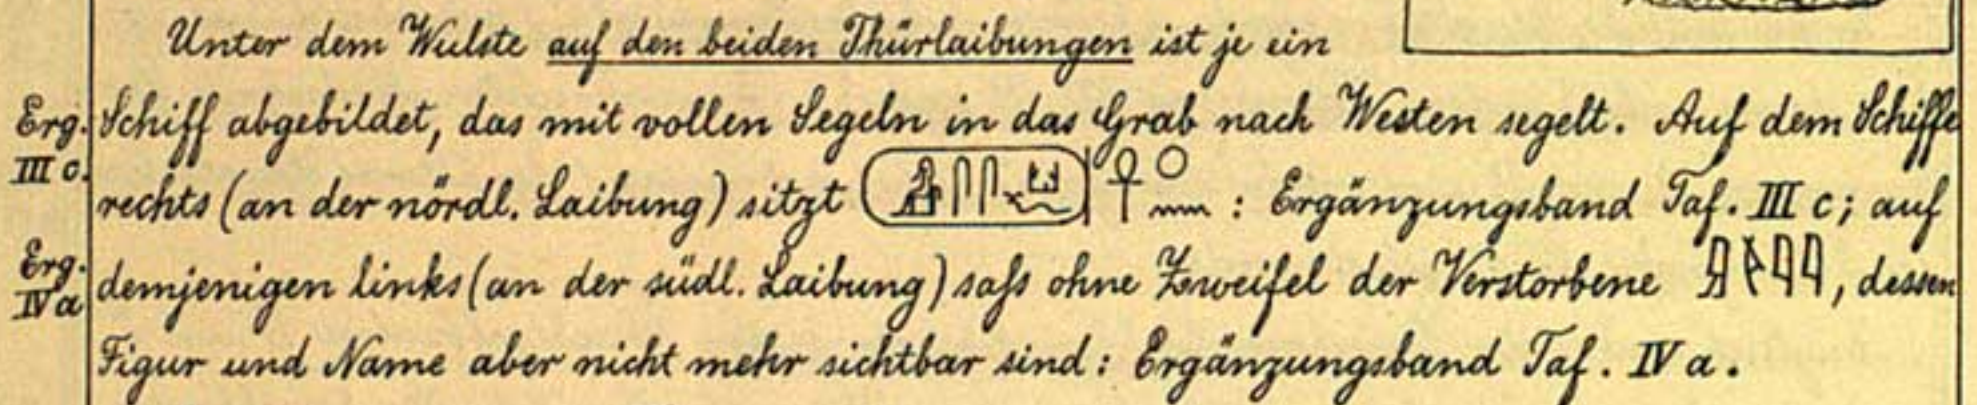 Unter dem Wulste auf den beiden Thürlaibungen ist je ein
Erg. Schiff abgebildet, das mit vollen Segeln in das Grab nach Westen segelt. Auf dem Schiffe
III c. rechts (an der nördl. Laibung) sitzt : Ergänzungsband Taf. III c; auf
Erg. IV a demjenigen links (an der südl. Laibung) saſs ohne Zweifel der Verstorbene , dessen
Figur und Name aber nicht mehr sichtbar sind: Ergänzungsband Taf. IV a.